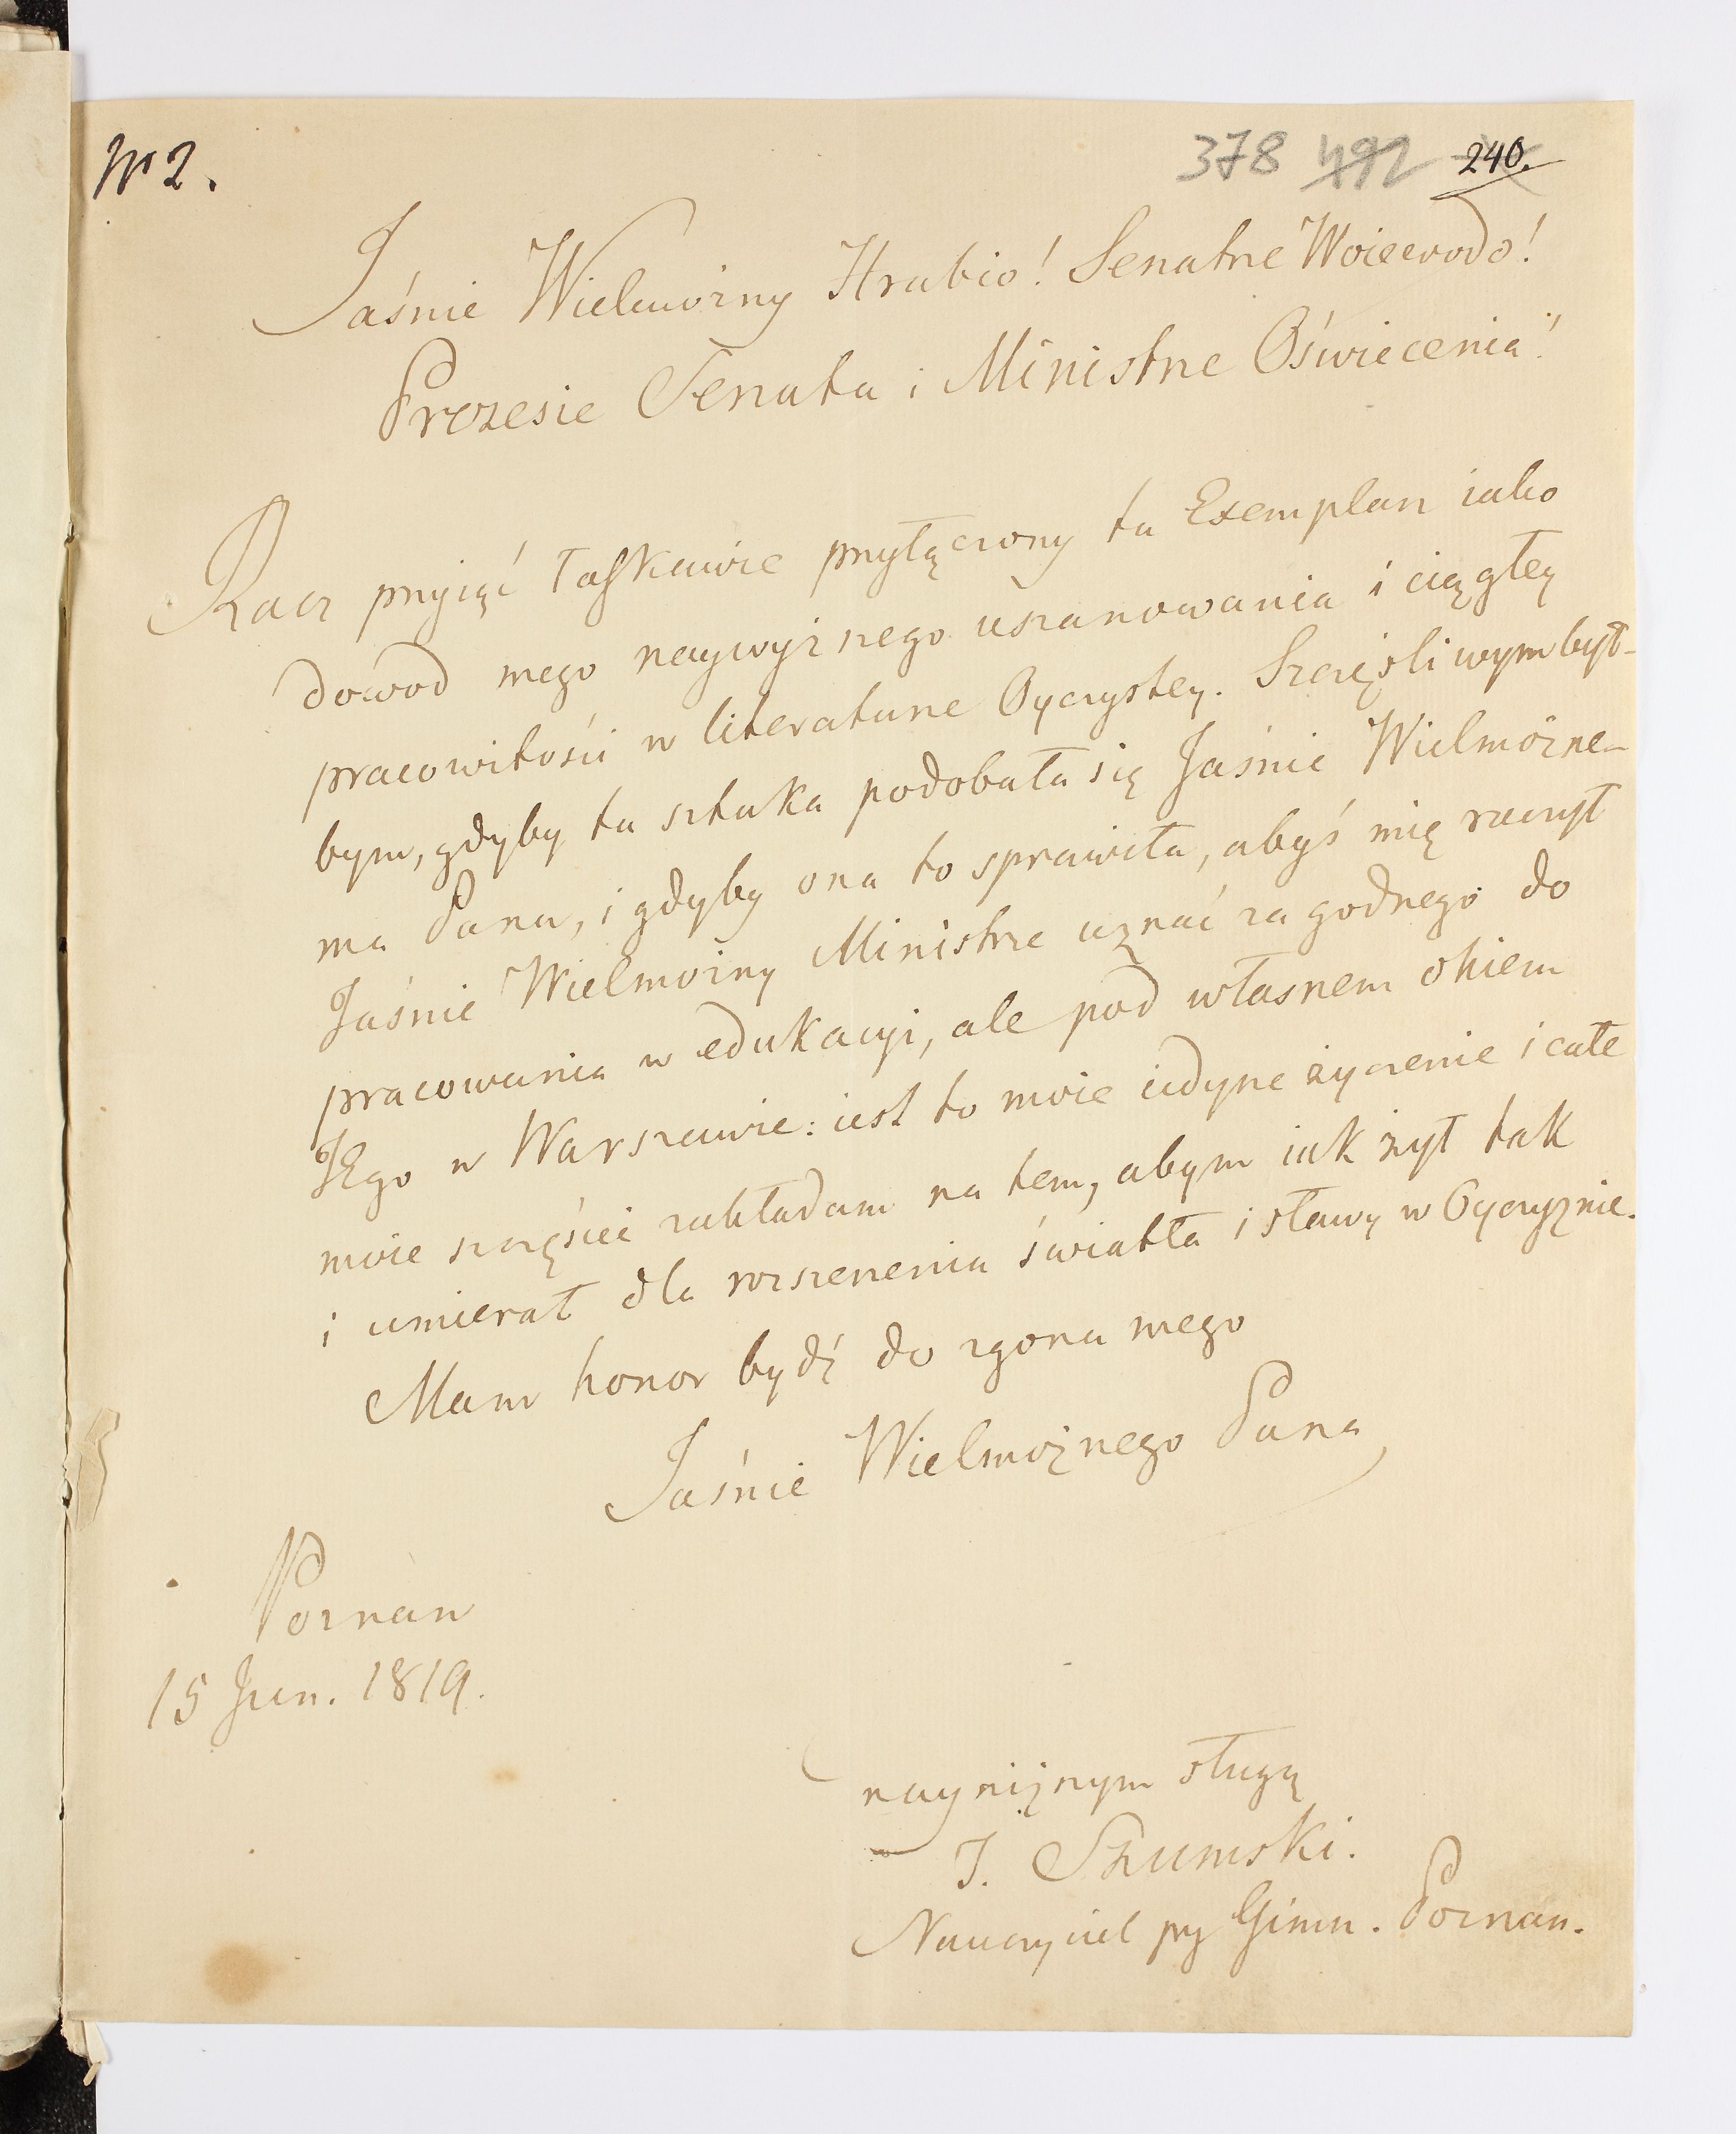 Nr 2.
378 492 240.
Jaśnie Wielmożny Hrabio! Senatrze Woiewodo!
Prezesie Senatu i Ministrze Oświecenia!
Racz przyiąć łaskawie przyłączony tu Exemplarz iako
dowod mego naywyższego uszanowania i ciągłey
pracowitości w literaturze Oyczystey. Szczęśliwym był-
bym, gdyby ta sztuka podobała się Jaśnie Wielmożne-
mu Panu, i gdyby ona to sprawiła, abyś mię raczył
Jaśnie Wielmożny Ministrze uznać za godnego do
pracowania w edukacyi, ale pod własnem okiem
Jego w Warszawie: iest to moie iedyne życzenie i całe
moie szczęście zakładam na tem, abym iak żył tak
i umierał dla rozszerzenia światła i sławy w Oyczyznie.
Mam honor bydź do zgonu mego
Jaśnie Wielmożnego Pana
Poznań
15 Jun. 1819.
nayniższym sługą
J. Szumski.
Nauczyciel przy Gimn. Poznań.